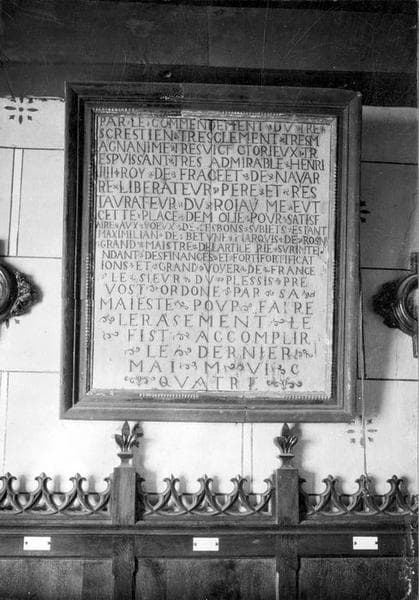 PAR · LE · COMMENDEMENT · DV · TRE
SCRESTIEN · TRESCLEMENT · TRESM
AGNANIME · TRESVICT · GLORIEVX · TR
ESPVISSANT · TRES · ADMIRABLE · HENRI
IIII · ROY · DE · FRACE · ET · DE · NAVAR
RE · LIBERATEVR · PERE · ET · RES
TAVRATEVR · DV · ROIAV · ME · EVT
CETTE · PLACE · DEMOLIE · POVR · SATISF
AIRE · AVX · VOEVX · DE · SES · BONS · SVBIETS · ESTANT
MAXIMILIAN · DE · BETVNE · MARQVIS · DE · ROSN
GRAND · MAISTRE · DE · LARTILE RIE · SVRINTE
NDANT · DES · FINANCES · ET · FORTIFICAT
IONS · ET · GRAND · VOYER · DE · FRANCE
LE · SIEVR · DV · PLESSIS · PRE
VOST · ORDONE · PAR · SA
MAIESTE · POVR · FAIRE
LE RASEMENT · LE
FIST · ACCOMPLIR
LE · DERNIER
MAI · M · VI · C
QVATRE